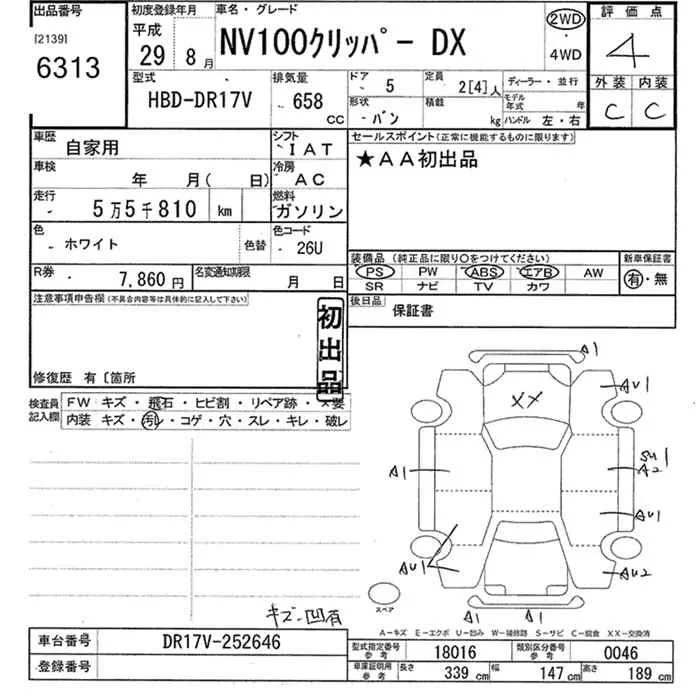 出品番号 初度登録年月 車名・グレード 2WD・4WD 評価点
[2139]
6313 平成29 8月 NV100クリッパー DX 4
型式 排気量 ドア 5 定員 2[4]人 ディーラー・並行 外装 内装
HBD-DR17V 658 CC 形状 バン 積載 kg モデル年式 年 ハンドル 左・右 C C
車歴 自家用 シフト IAT セールスポイント(正常に機能するものに限ります)
車検 年 月( 日) 冷房 AC ★AA初出品
走行 5万5千810 km 燃料 ガソリン
色 ホワイト 色替 色コード 26U
装備品(純正品に限り○をつけてください) 新車保証書
R券 7,860円 名変通知期限 月 日 PS PW ABS エアB AW 有・無
SR ナビ TV カワ
注意事項申告欄(不具合内容等は具体的に記入して下さい) 初出品 後日品 保証書
修復歴 有〔箇所
検査員記入欄 FW キズ・飛石・ヒビ割・リペア跡・×要
内装 キズ・汚レ・コゲ・穴・スレ・キレ・破レ
A1
AU1
XX
A1
SU1
A2
AU1
AU1
AU2
スペア
A1
A1
キズ・凹有
A-キズ E-エクボ U-凹み W-補修跡 S-サビ C-腐食 XX-交換済
車台番号 DR17V-252646 型式指定番号参考 18016 類別区分番号参考 0046
登録番号 車庫証明用参考 長さ 339 cm 幅 147 cm 高さ 189 cm